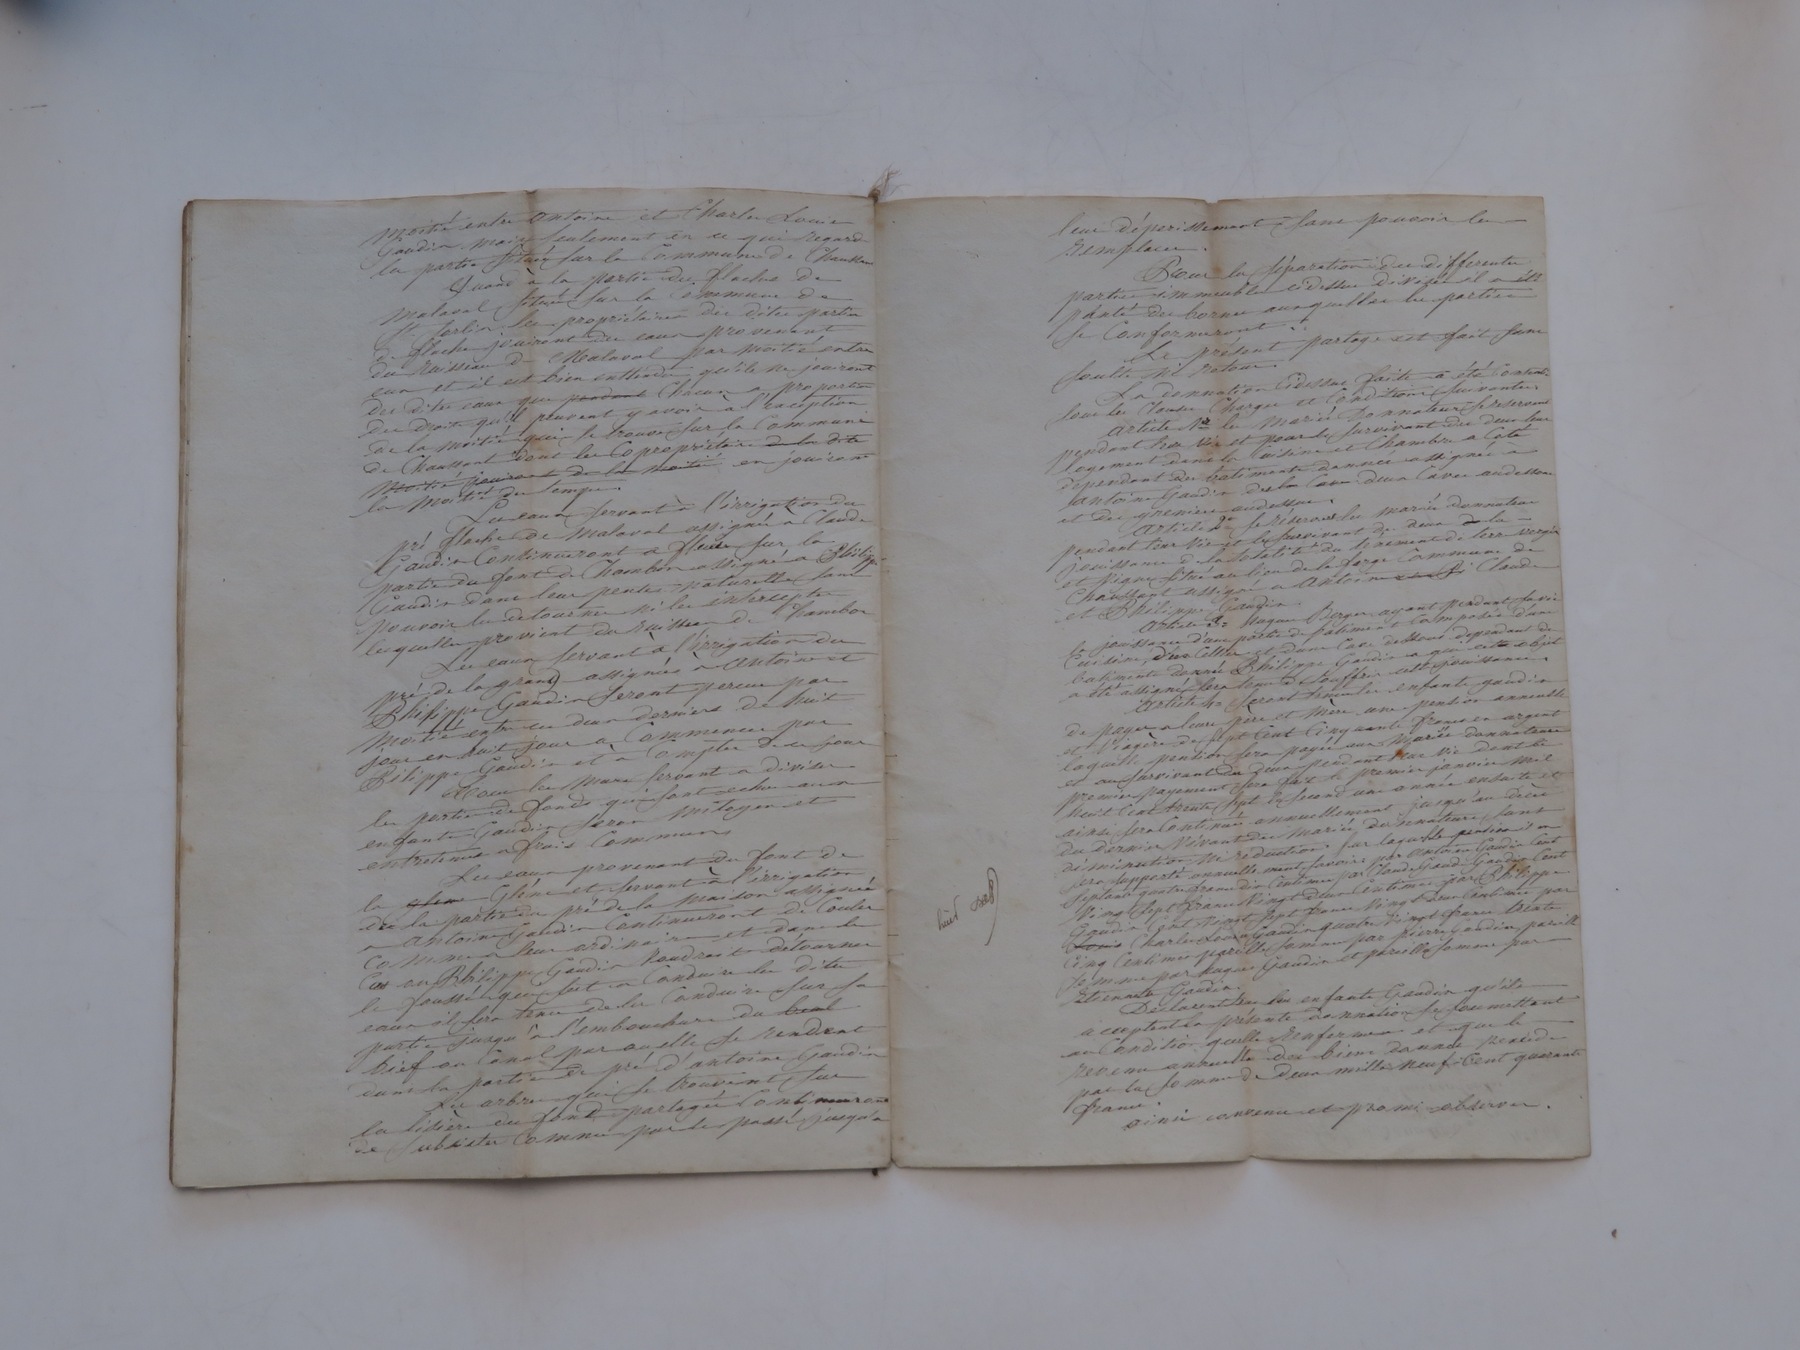 moitié entre antoine et Charles Louis
Gaudin mais seulement en ce qui regarde
la partie située sur la Commune de Chaussan
Quand à la partie du flache de
Malaval située sur la Commune de
St Sorlin les propriétaires des dites parties
de flache jouiront des eaux provenant
du ruisseau de Malaval par moitié entre
eux et il est bien entendu qu'ils ne jouiront
des dites eaux que pendant Chacun a proportion
des droits qu'il peuvent y avoir à l'exception
de la moitié qui se trouve sur la Commune
de Chaussant dont les Copropriétaires de la dite
Moitié jouiront de la moitié en jouiront
la moitié du temps.
Les eaux servant à l'irrigation du
pré flache de Malaval assignée a Claude
Gaudin Continueront a fluer sur la
partie du font de Chambon assigné a Philippe
Gaudin dans leur pente naturelle sans
pouvoir les détourner ni les intercepter
lesquelles provient du ruisseau de Chambon
Les eaux servant à l'irrigation du
pré de la grand assignés a Antoine et
Philippe Gaudin seront perçue par
Moitié entre ces deux derniers de huit
jour en huit jour a Commencer par
Philippe Gaudin et à Compter de ce jour
Tous les murs servant a diviser
les parties de fonds qui sont échus aux
enfants Gaudin seront mitoyen et
entretenus a frais Communs
Les eaux provenant du font de
la Glène et servant à l'irrigation
de la partie du pré de la maison assignée
a Antoine Gaudin Continueront de Couler
Comme a leur ordinaire et dans le
Cas ou Philippe Gaudin voudroit détourner
le foussé qui sert a Conduire les dites
eaux il sera tenu de les Conduire sur sa
partie jusqu'à l'embouchure du bial
bief ou Canal par ou elle se rendent
dans la partie de pré d'antoine Gaudin
Les arbres qui se trouvent sur
la lisière des fonds partagés Continueront
de subsister Comme par le passé jusqu'a
leur dépérissement sans pouvoir les
remplacer.
Pour la séparation des différentes
parties immeubles cidessus divisés il a été
planté des bornes auxquelles les parties
se Conformeront
Le présent partage est fait sans
soulte ni retour.
La donnation Cidessus faite a été Consentie
sous les Clauses Charges et Conditions suivantes
Article 1er les Mariés Donnateurs se réservent
pendant leur vie et pour le survivant des deux leur
logement dans la Cuisine et Chambre a Coté
dépendant des batiments donnés assignés a
Antoine Gaudin d'une Cave audessous
et des greniers audessus.
Article 2e se réservent les mariés donnateurs
pendant leur vie et le survivant des deux la
jouissance de la totalité du tènement de terre verger
et vigne situé au lieu de la forge Commune de
Chaussant assigné a Antoine Claude
et Philippe Gaudin
Article 3e Hugues Berger ayant pendant sa vie
la jouissance d'une partie de batiment Composée d'une
Cuisine, d'un Cellier et d'une Cave dessous dépendant du
batiment donné Philippe Gaudin a qui cette objet
a été assigné sera tenu de souffrir cette jouissance.
Article 4e seront tenus les enfants gaudin
de payer a leurs père et mère une pension annuelle
et viagère de sept Cent Cinquante francs en argent
laquelle pension sera payée aux Mariés donnateurs
et au survivant des deux pendant leur vie dont le
premier payement sera fait le premier janvier mil
huit Cent trente sept le second une année ensuite et
ainsi sera Continué annuellement jusqu'au décès
du dernier vivant des Mariés donnateurs sans
diminution ni réduction sur laquelle pension il
sera supporté annuellement savoir: par Antoine Gaudin Cent
Vingt sept francs Vingt deux Centimes par Philippe
Gaudin Cent Vingt sept francs Vingt deux Centimes par
Louis Charles Louis Gaudin quatre vingt francs trente
Cinq Centimes pareille somme par pierre Gaudin pareille
somme par hugues Gaudin et pareille somme par
Etienne Gaudin.
Déclarent les enfants Gaudin qu'ils
acceptent la présente donnation se soumettant
aux Conditions quelle renferme et que le
revenu annuelle des biens donnés n'excède
pas la somme de deux mille neuf Cent quarante
francs.
ainsi convenu et promi observer.
huit